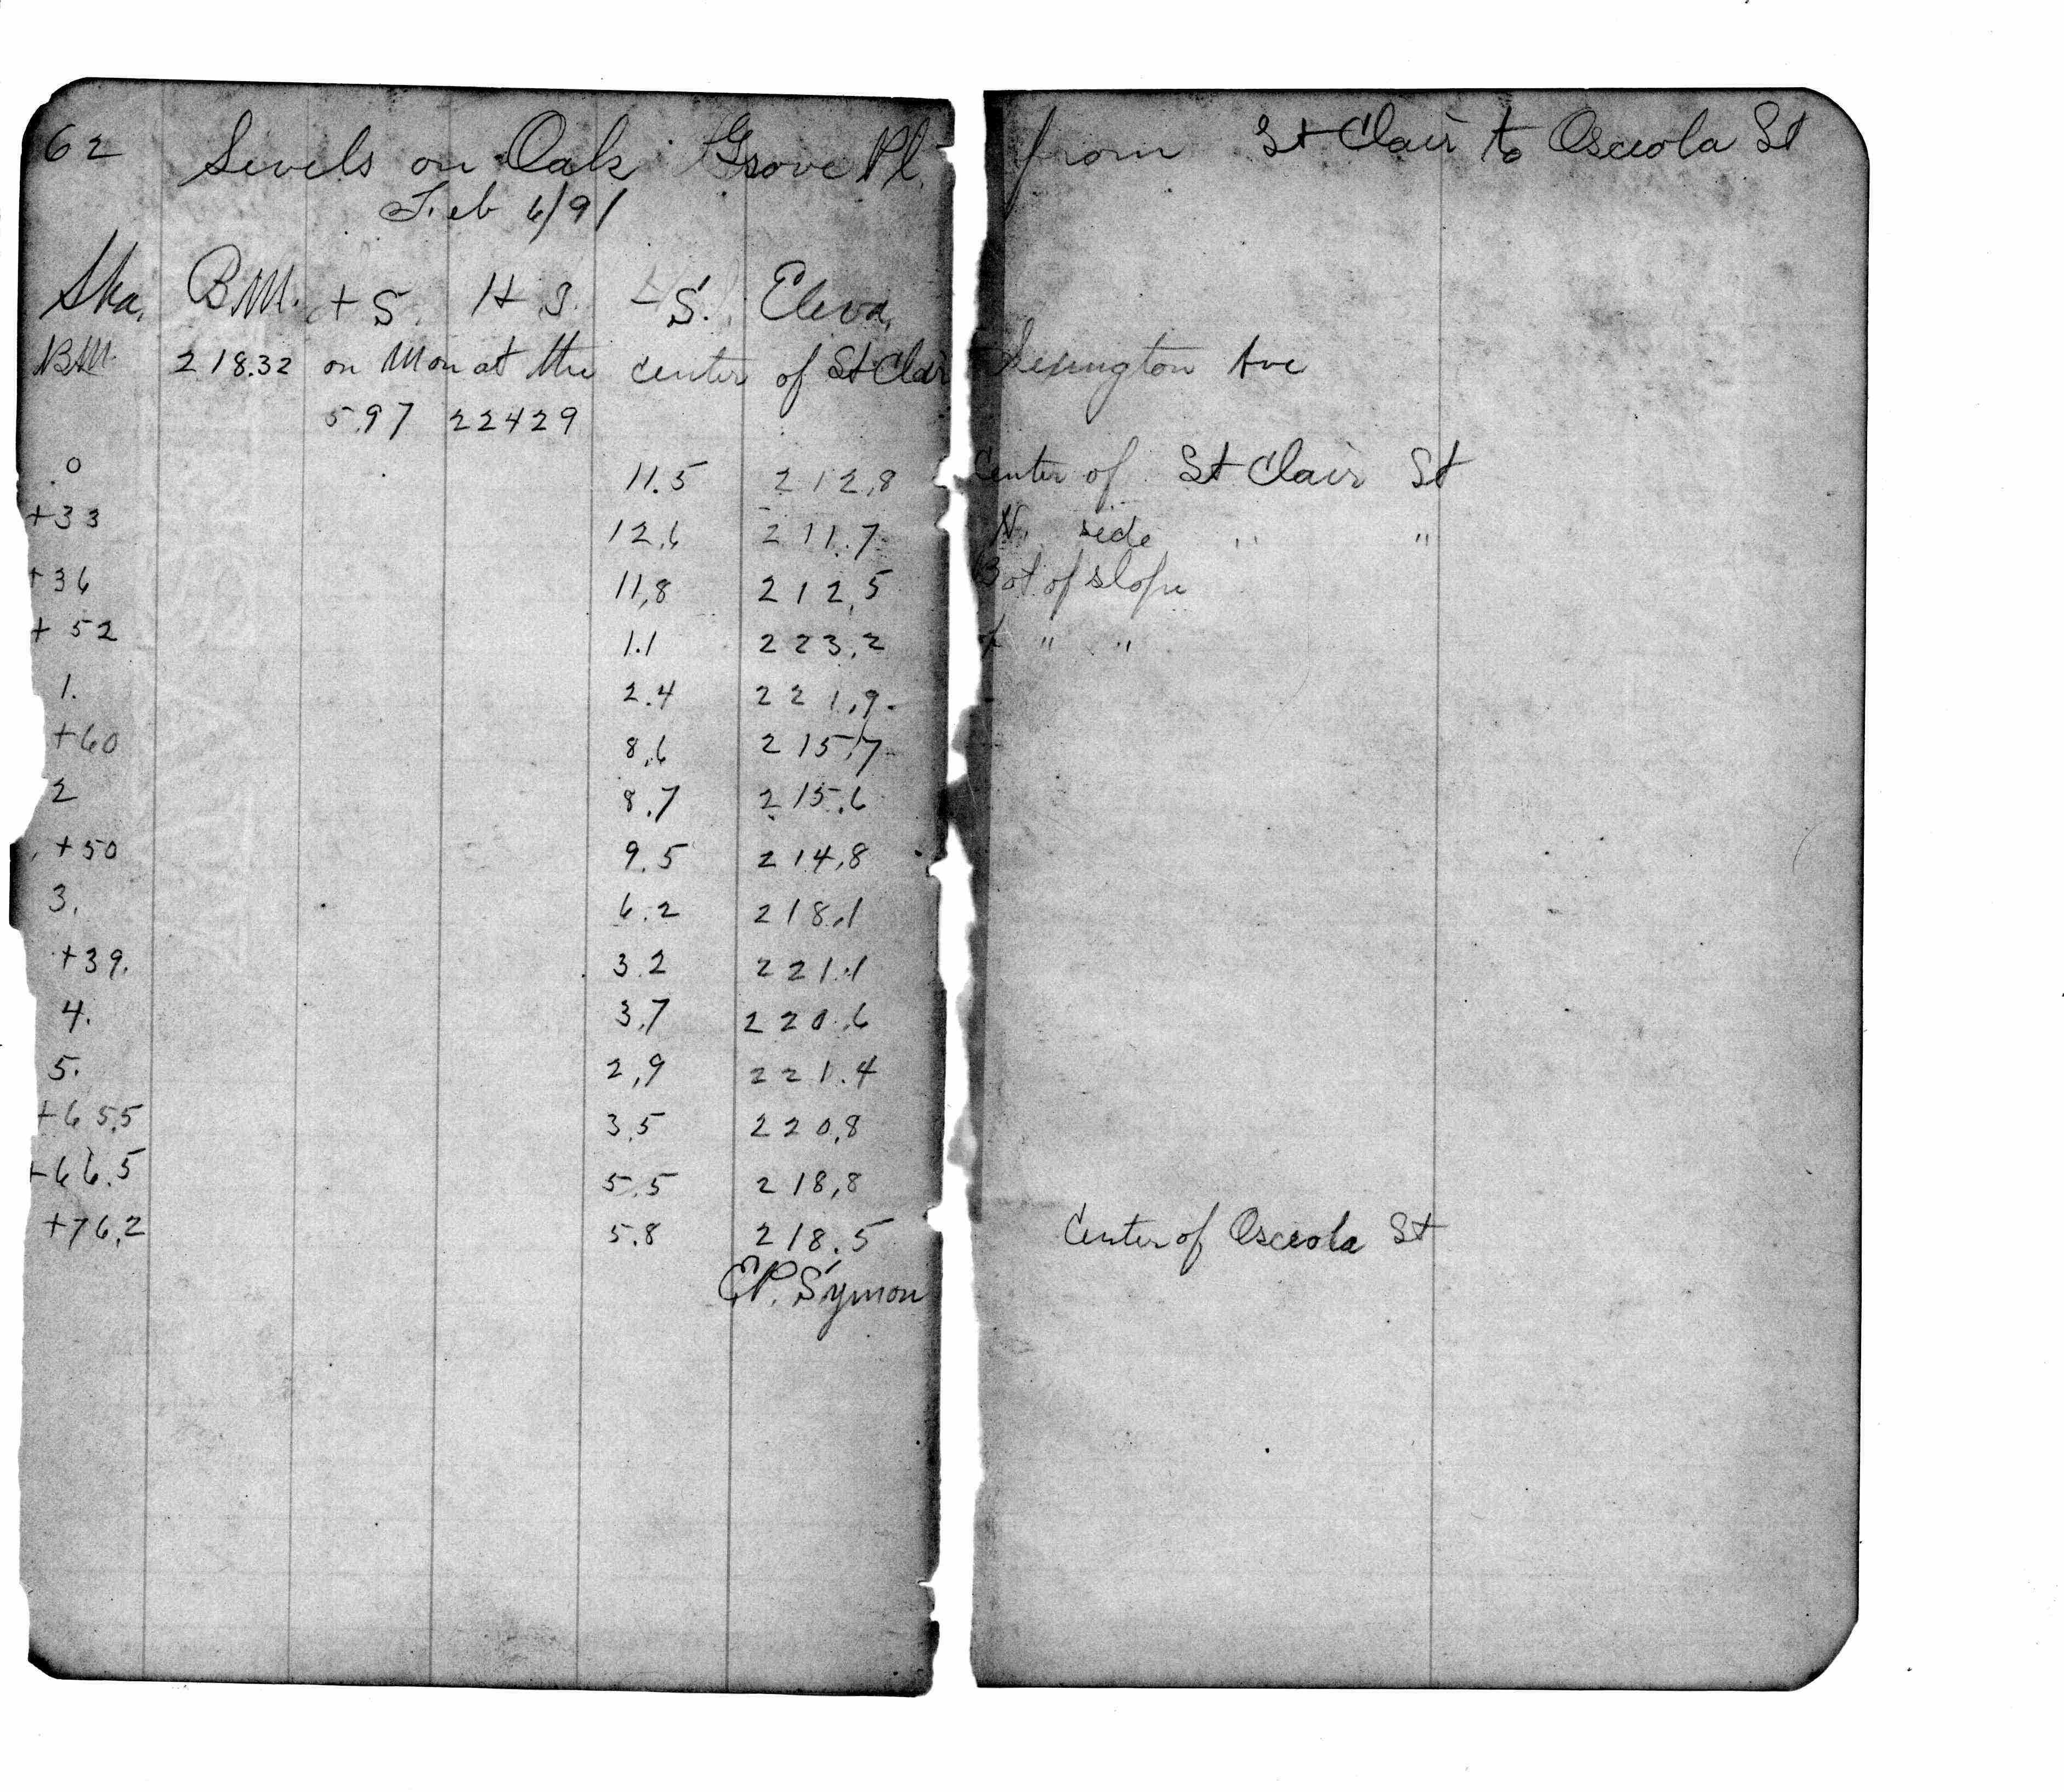 62 Levels on Oak Grove Pl. from St Clair to Osceola St
Feb 6/91
Sta. B.M. + S. H I. - S. Eleva.
B.M. 218.32 on Mon at the center of St Clair Lexington Ave
5.97 224 29
0 11.5 212.8 Center of St Clair St
+33 12.6 211.7 N. side " "
+36 11.8 212.5 Bot of slope
+52 1.1 223.2 " "
1. 2.4 221.9
+60 8.6 215.7
2 8.7 215.6
+50 9.5 214.8
3. 6.2 218.1
+39. 3.2 221.1
4. 3.7 220.6
5. 2.9 221.4
+65.5 3.5 220.8
+66.5 5.5 218.8
+76.2 5.8 218.5 Center of Osceola St
E.P. Symon